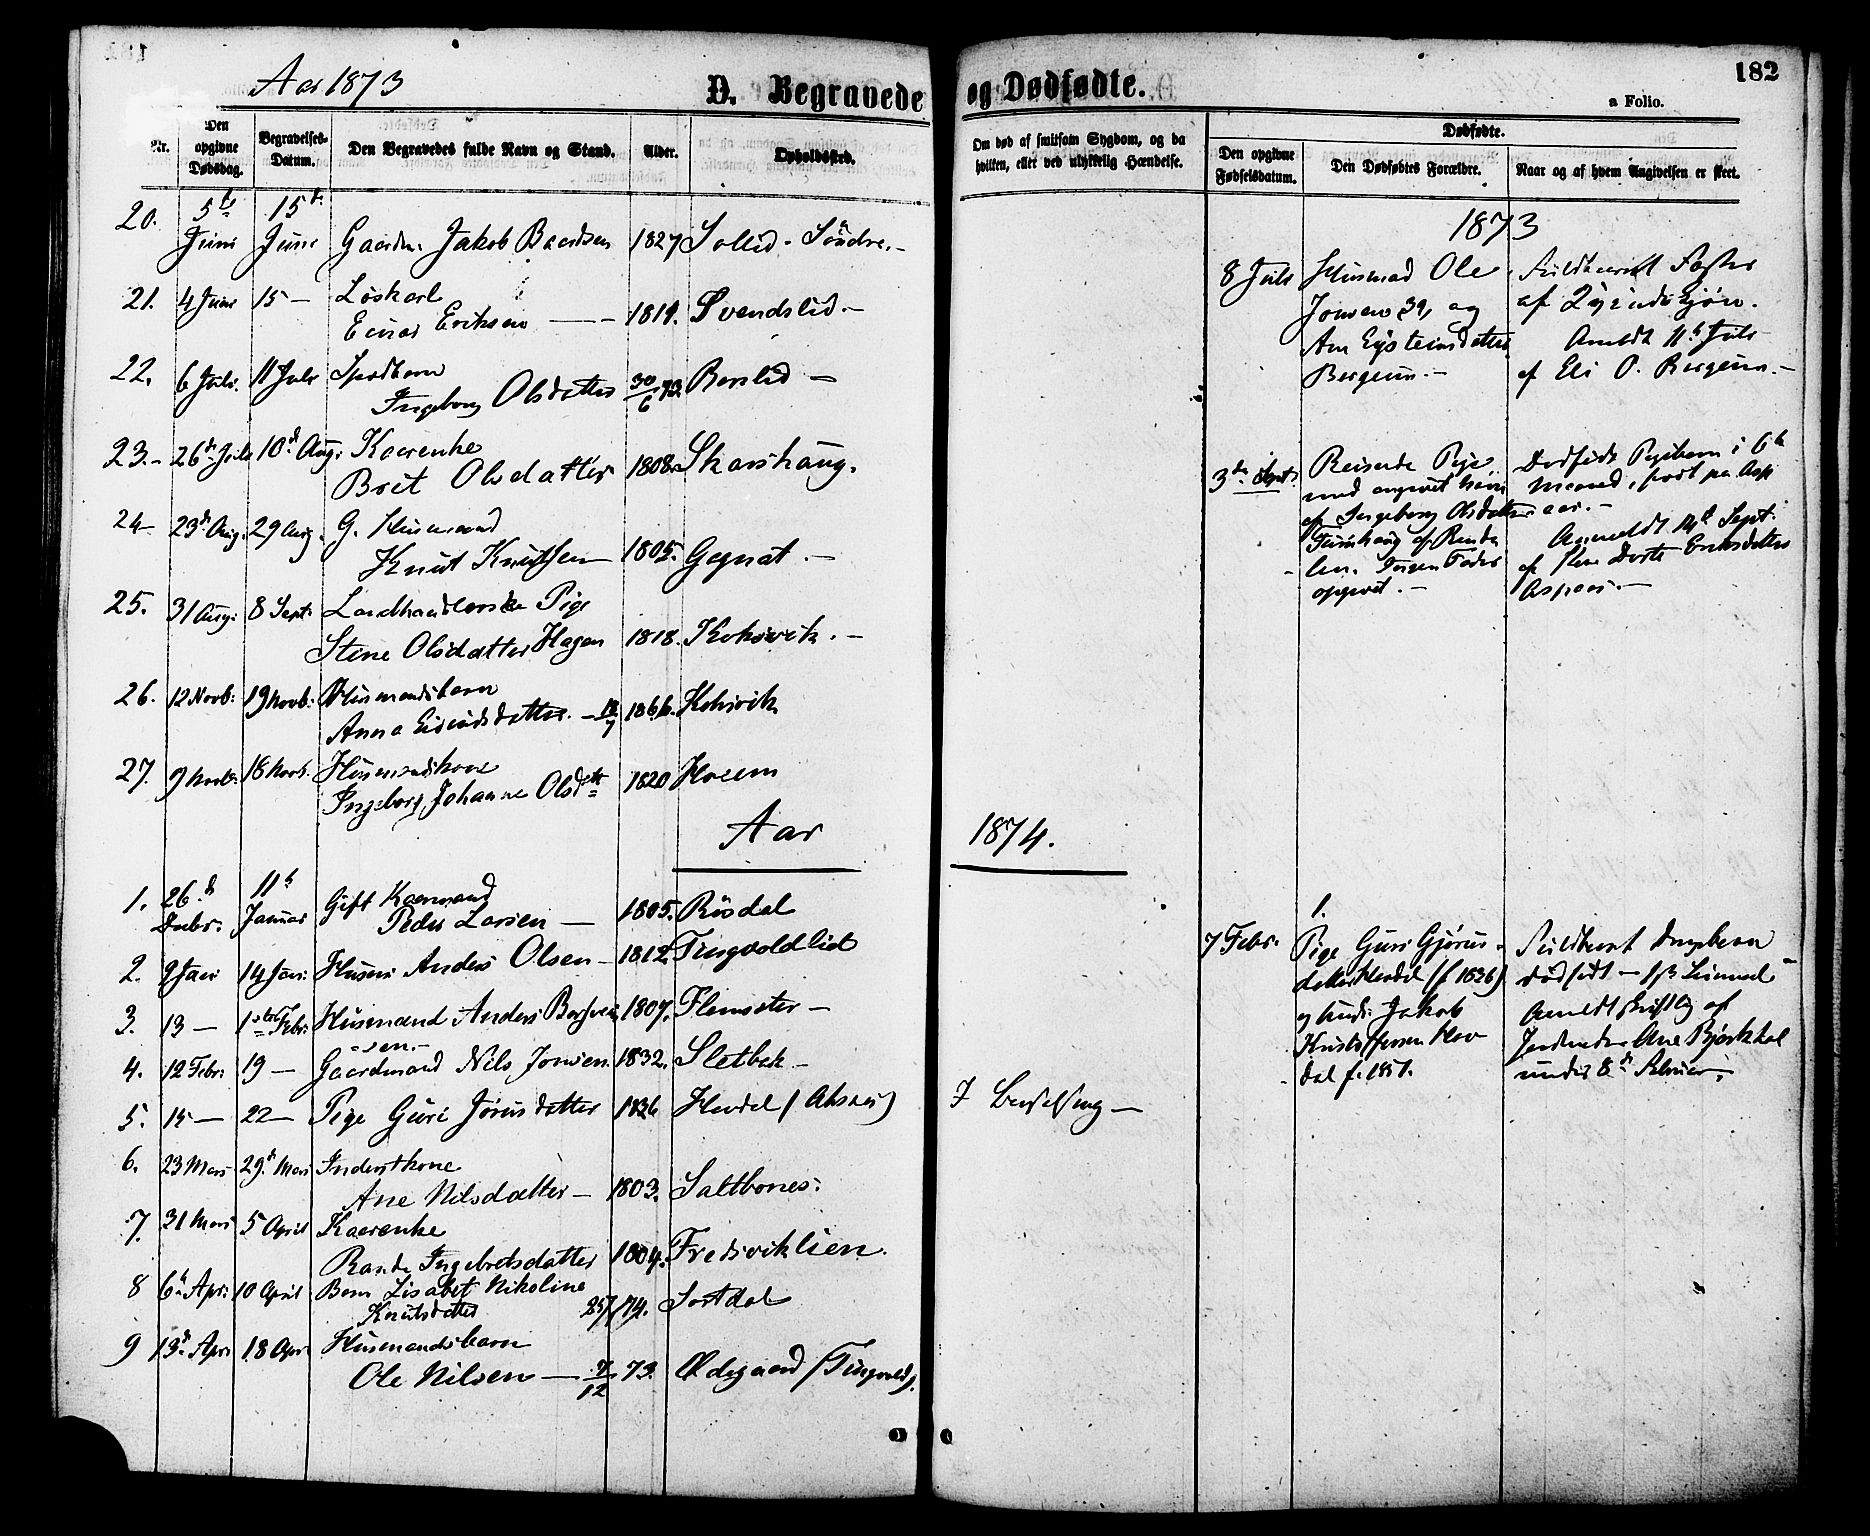 Aar 1873
D. Begravede og Dødfødte.
182
a Folio.
Nr.
Den opgivne Dødsdag.
Begravelses-Datum.
Den Begravedes fulde Navn og Stand.
Alder.
Opholdssted.
Om død af smitsom Sygdom, og da hvilken, eller ved ulykkelig Hændelse.
Dødfødte.
Den opgivne Fødselsdatum.
Den Dødfødtes Forældre.
Naar og af hvem Angivelsen er skeet.
20. 5te Juni 15de Juni Gaardm. Jakob Baardsen 1827 Sollid Søndre.-
21. 4 Juni 15 - Løskarl
Einar Eriksen - 1819. Svendslid.-
22. 6 Juli 11 Juli Spædbarn
Ingeborg Olsdatter 30/6 73. Berslid -
23.- 26de Juli 10de Aug. Kaarenke
Brit Olsdatter 1808. Skarshaug.
24- 23de Aug. 29 Aug. G. Husmand
Knut Knutsen 1805. Gegnat.-
25. 31 Aug. 8 Sept. Landhandlerske Pige
Stine Olsdatter Hagen 1818. Koksvik.-
26. 12 Novb. 19 Novb. Husmandsbarn
Anna datter - 1866. Koksvik
27. 9 Novb. 18 Novb. Husmandskone
Ingeborg Johanne Olsdtr 1820 Hoem
1873
8 Juli Husmand Ole
Jonsen 39, og
Ane Eysteinsdatter
Bergeim.-
af
Anmeldt 11te Juli
af Eli O. Bergeim.-
3die Sept. Reisende Pige
med angivet Navn
af Ingeborg Olsdatter
af
Fader
opgivet.-
Dødfødt Pigebarn i 6te
Maaned, født paa Asp
aas.-
Anmeldt 14de Sept.
af Dorte Eriksdatter
Aspaas.-
Aar 1874.
1. 26de Decbr. 11te Januar Gift Kaarmand
Peder Larsen - 1805. Risdal
2. 9 Jan 14 Jan. Husm. Anders Olsen - 1812. Tingvoldlid
3. 13 - 1ste Febr. Husmand Anders 1807. Flemsæter -
4. 12 Febr. 19 - Gaardmand Nils Jonsen 1832. Sletbak -
5. 15 - 22 - Pige Guri Jørusdatter 1836 (Aksnes) I Barselseng -
6. 23 Mars 29de Mars Inderstkone
Ane Nilsdatter - 1803. Saltbones.
7. 31 Mars 5 April Kaarenke
Rande Ingebretsdatter 1804. Fredsviklien.
8 6te Apr. 10 April Barn Lisabet Nikoline
Knutsdatter 74. Sortdal
9 13de Apr. 18 Apr. Husmandsbarn
Ole Nilsen - 7/12 73. Ødegaard (Tingvold).
1.
7 Febr. Pige Guri Gjørus-
datter (f 1836)
og Jakob
Kristoffersen
dal f. 1851.
dødfødt -
Anmeldt skriftlig af
Jordmoder Ane Bjørkdal
under 8de Februar.